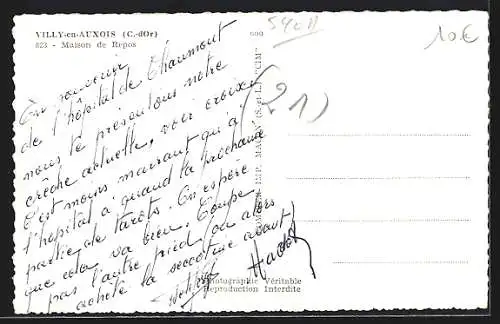 VILLY-en-AUXOIS (C.-d'Or)
823 - Maison de Repos
10€
(21)
En souvenir
de l'hôpital de Chaumont
nous te présentons notre
crèche actuelle, voir croix
C'est moins marrant qu'à
l'hôpital à quand la prochaine
partie de tarots. On espère
que cela va bien. Coupe
pas l'autre pied ou alors
achète la secotine avant
Photographie Véritable
Reproduction Interdite